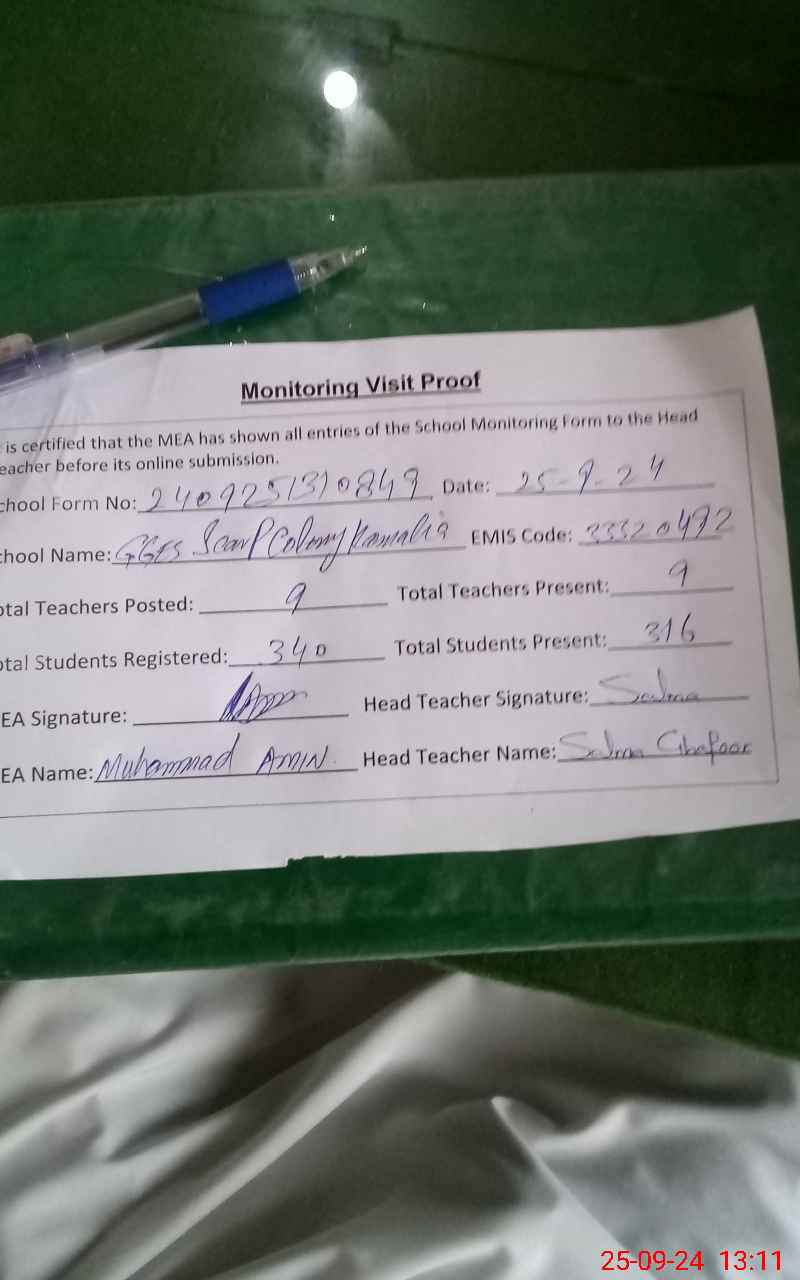 Monitoring Visit Proof
is certified that the MEA has shown all entries of the School Monitoring Form to the Head
eacher before its online submission.
chool Form No: 2409251310849 Date: 25-9-24
chool Name: GGES Scarp Colony Kamalia EMIS Code: 33320492
otal Teachers Posted: 9 Total Teachers Present: 9
otal Students Registered: 340 Total Students Present: 316
EA Signature: Head Teacher Signature: Salma
EA Name: Muhammad AMIN. Head Teacher Name: Salma Ghafoor
25-09-24 13:11